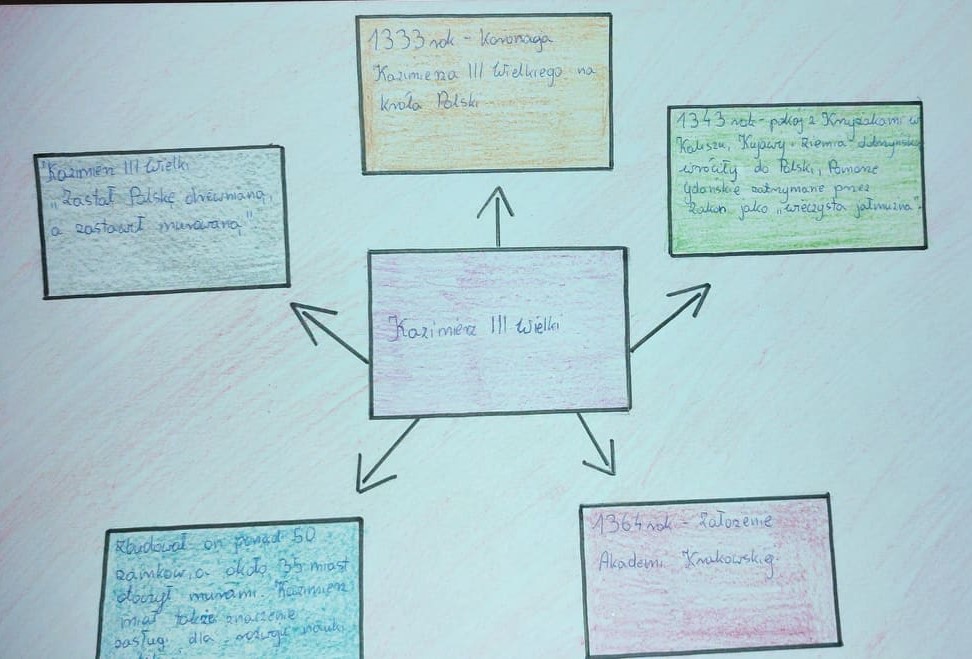 1333 rok - Koronacja
Kazimierza III Wielkiego na
króla Polski
1343 rok - pokój z Krzyżakami w
Kaliszu, Kujawy i ziemia dobrzyńska
wróciły do Polski, Pomorze
Gdańskie zatrzymane przez
zakon jako "wieczysta jałmużna".
Kazimierz III Wielki
"Zastał Polskę drewnianą,
a zostawił murowaną"
Kazimierz III Wielki
Zbudował on ponad 50
zamków, a około 35 miast
otoczył murami. Kazimierz
miał także znaczenie
zasługi dla rozwoju nauki
1364 rok - Założenie
Akademi Krakowskiej